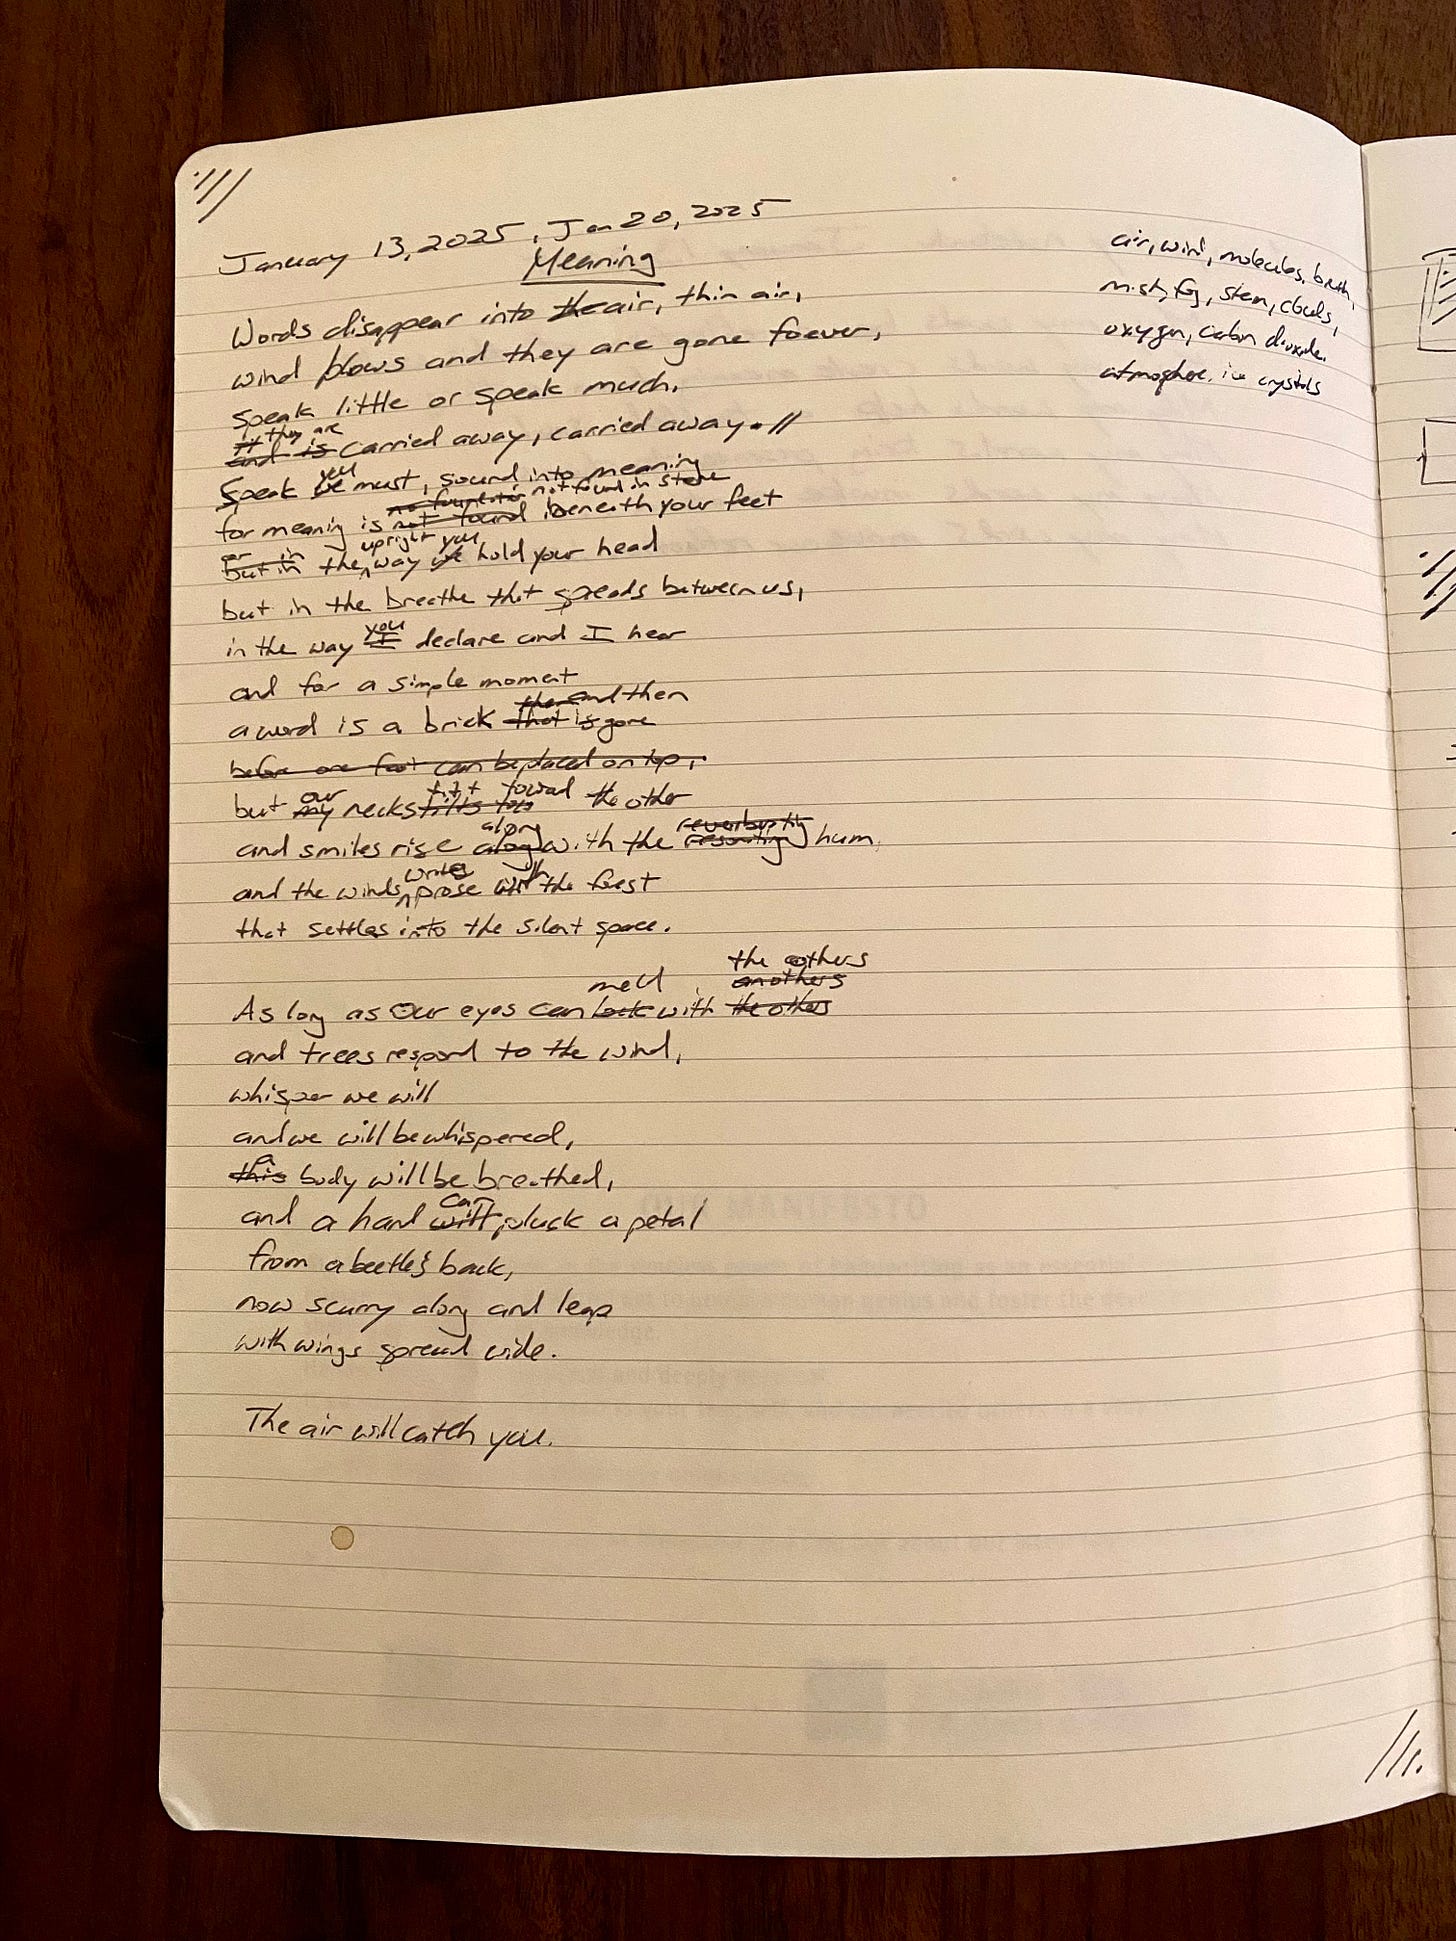 January 13, 2025, Jan 20, 2025
Meaning
air, wind, molecules, breath,
mist, fog, steam, clouds,
oxygen, carbon dioxide,
atmosphere, ice crystals
Words disappear into the air, thin air,
wind blows and they are gone foever,
speak little or speak much,
it they are
and is carried away, carried away. //
you
Speak we must, sound into meaning
no foundation not found in stone
for meaning is not found beneath your feet
or in upright you
but in the way we hold your head
but in the breathe that spreads between us,
you
in the way I declare and I hear
and for a simple moment
then and then
a word is a brick that is gone
before one foot can be placed on top,
our tilt toward
but my necks tilts the other
along reverberating
and smiles rise along with the resonating hum,
write with
and the winds prose the forest
that settles into the silent space.
the others
meld anothers
As long as our eyes can lock with the others
and trees respond to the wind,
whisper we will
and we will be whispered,
a
this body will be breathed,
can
and a hand will pluck a petal
from a beetle's back,
now scurry along and leap
with wings spread wide.
The air will catch you.